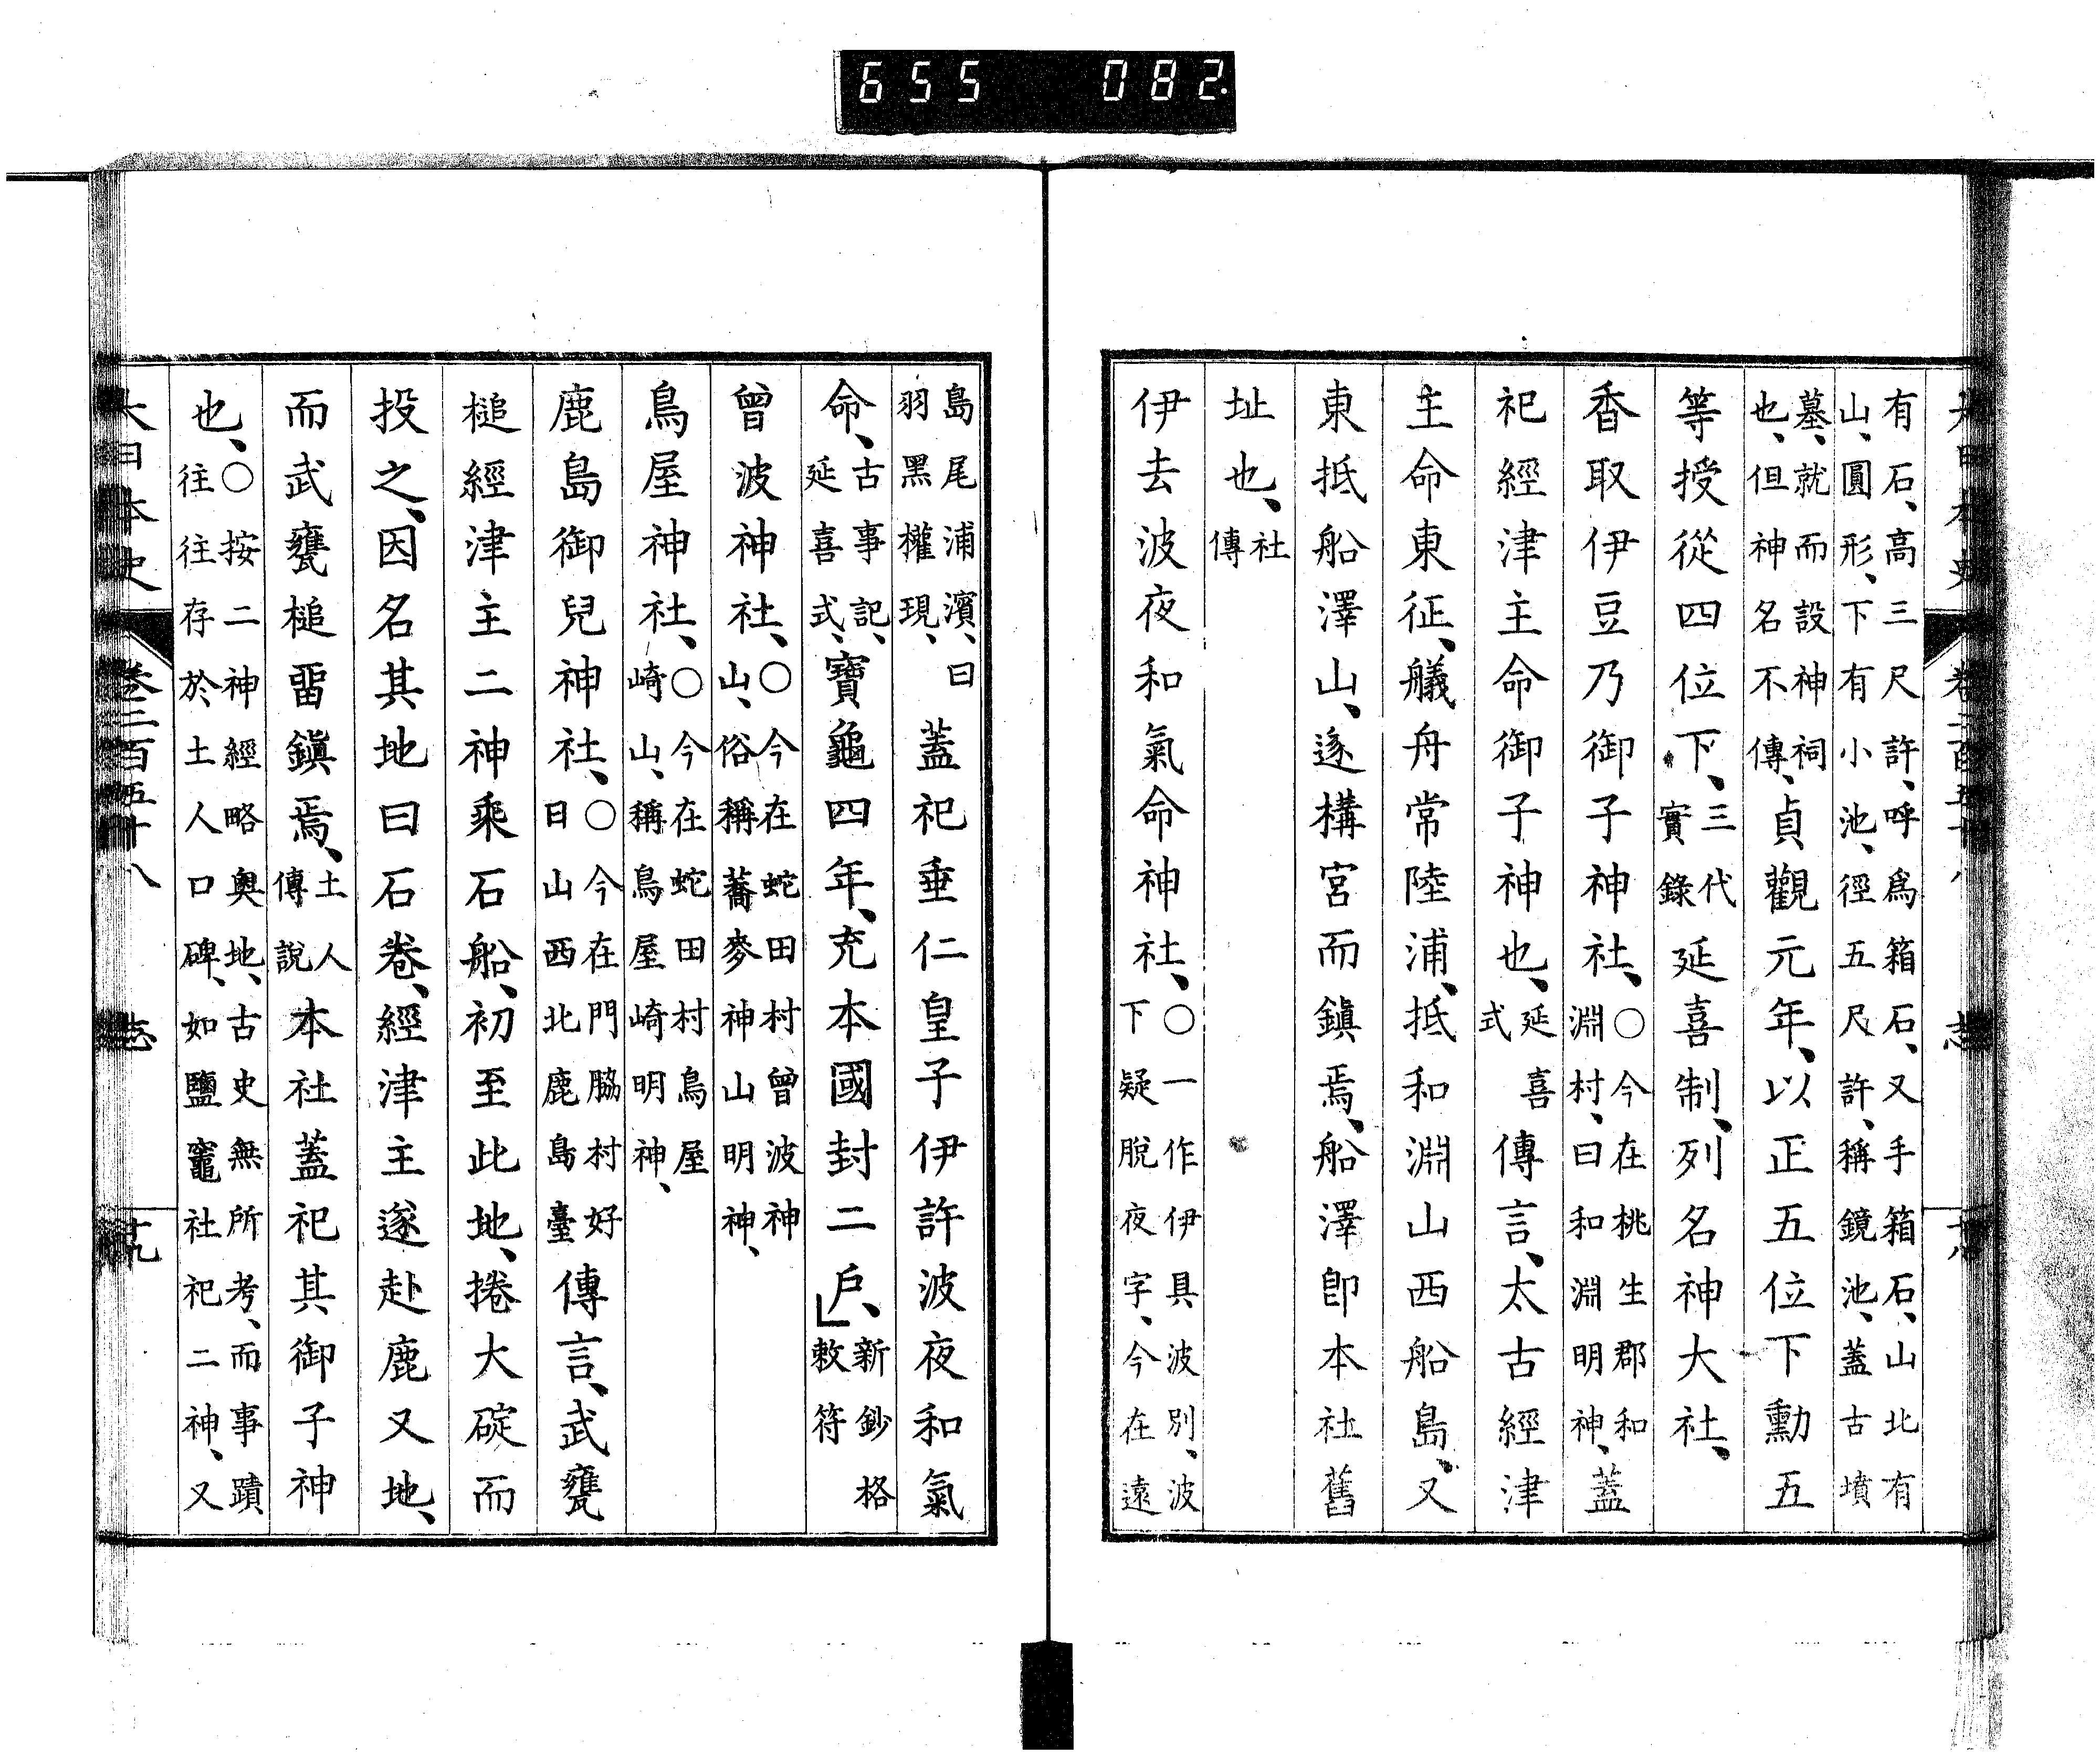 655 082.
大日本史 卷二百五十八 志 十八
有石、高三尺許、呼爲箱石、又手箱石、山北有
山、圓形、下有小池、徑五尺許、稱鏡池、蓋古墳
墓、就而設神祠
也、但神名不傳、貞觀元年、以正五位下勳五
等授從四位下、三代實錄延喜制、列名神大社、
香取伊豆乃御子神社、○今在桃生郡和淵村、曰和淵明神、蓋
祀經津主命御子神也、延喜式傳言、太古經津
主命東征、艤舟常陸浦、抵和淵山西船島、又
東抵船澤山、遂構宮而鎭焉、船澤卽本社舊
址也、社傳
伊去波夜和氣命神社、○一作伊具波別、波下疑脫夜字、今在遠
島尾浦濱、曰羽黑權現、蓋祀垂仁皇子伊許波夜和氣
命、古事記、延喜式、寶龜四年、充本國封二戶、」新鈔格敕符
曾波神社、○今在蛇田村曾波神山、俗稱蕎麥神山明神、
鳥屋神社、○今在蛇田村鳥屋崎山、稱鳥屋崎明神、
鹿島御兒神社、○今在門脇村好日山西北鹿島臺傳言、武甕
槌經津主二神乘石船、初至此地、捲大碇而
投之、因名其地曰石卷、經津主遂赴鹿又地、
而武甕槌畱鎭焉、土人傳說本社蓋祀其御子神
也、○按二神經略奧地、古史無所考、而事蹟往往存於土人口碑、如鹽竈社祀二神、又
大日本史 卷二百五十八 志 十九